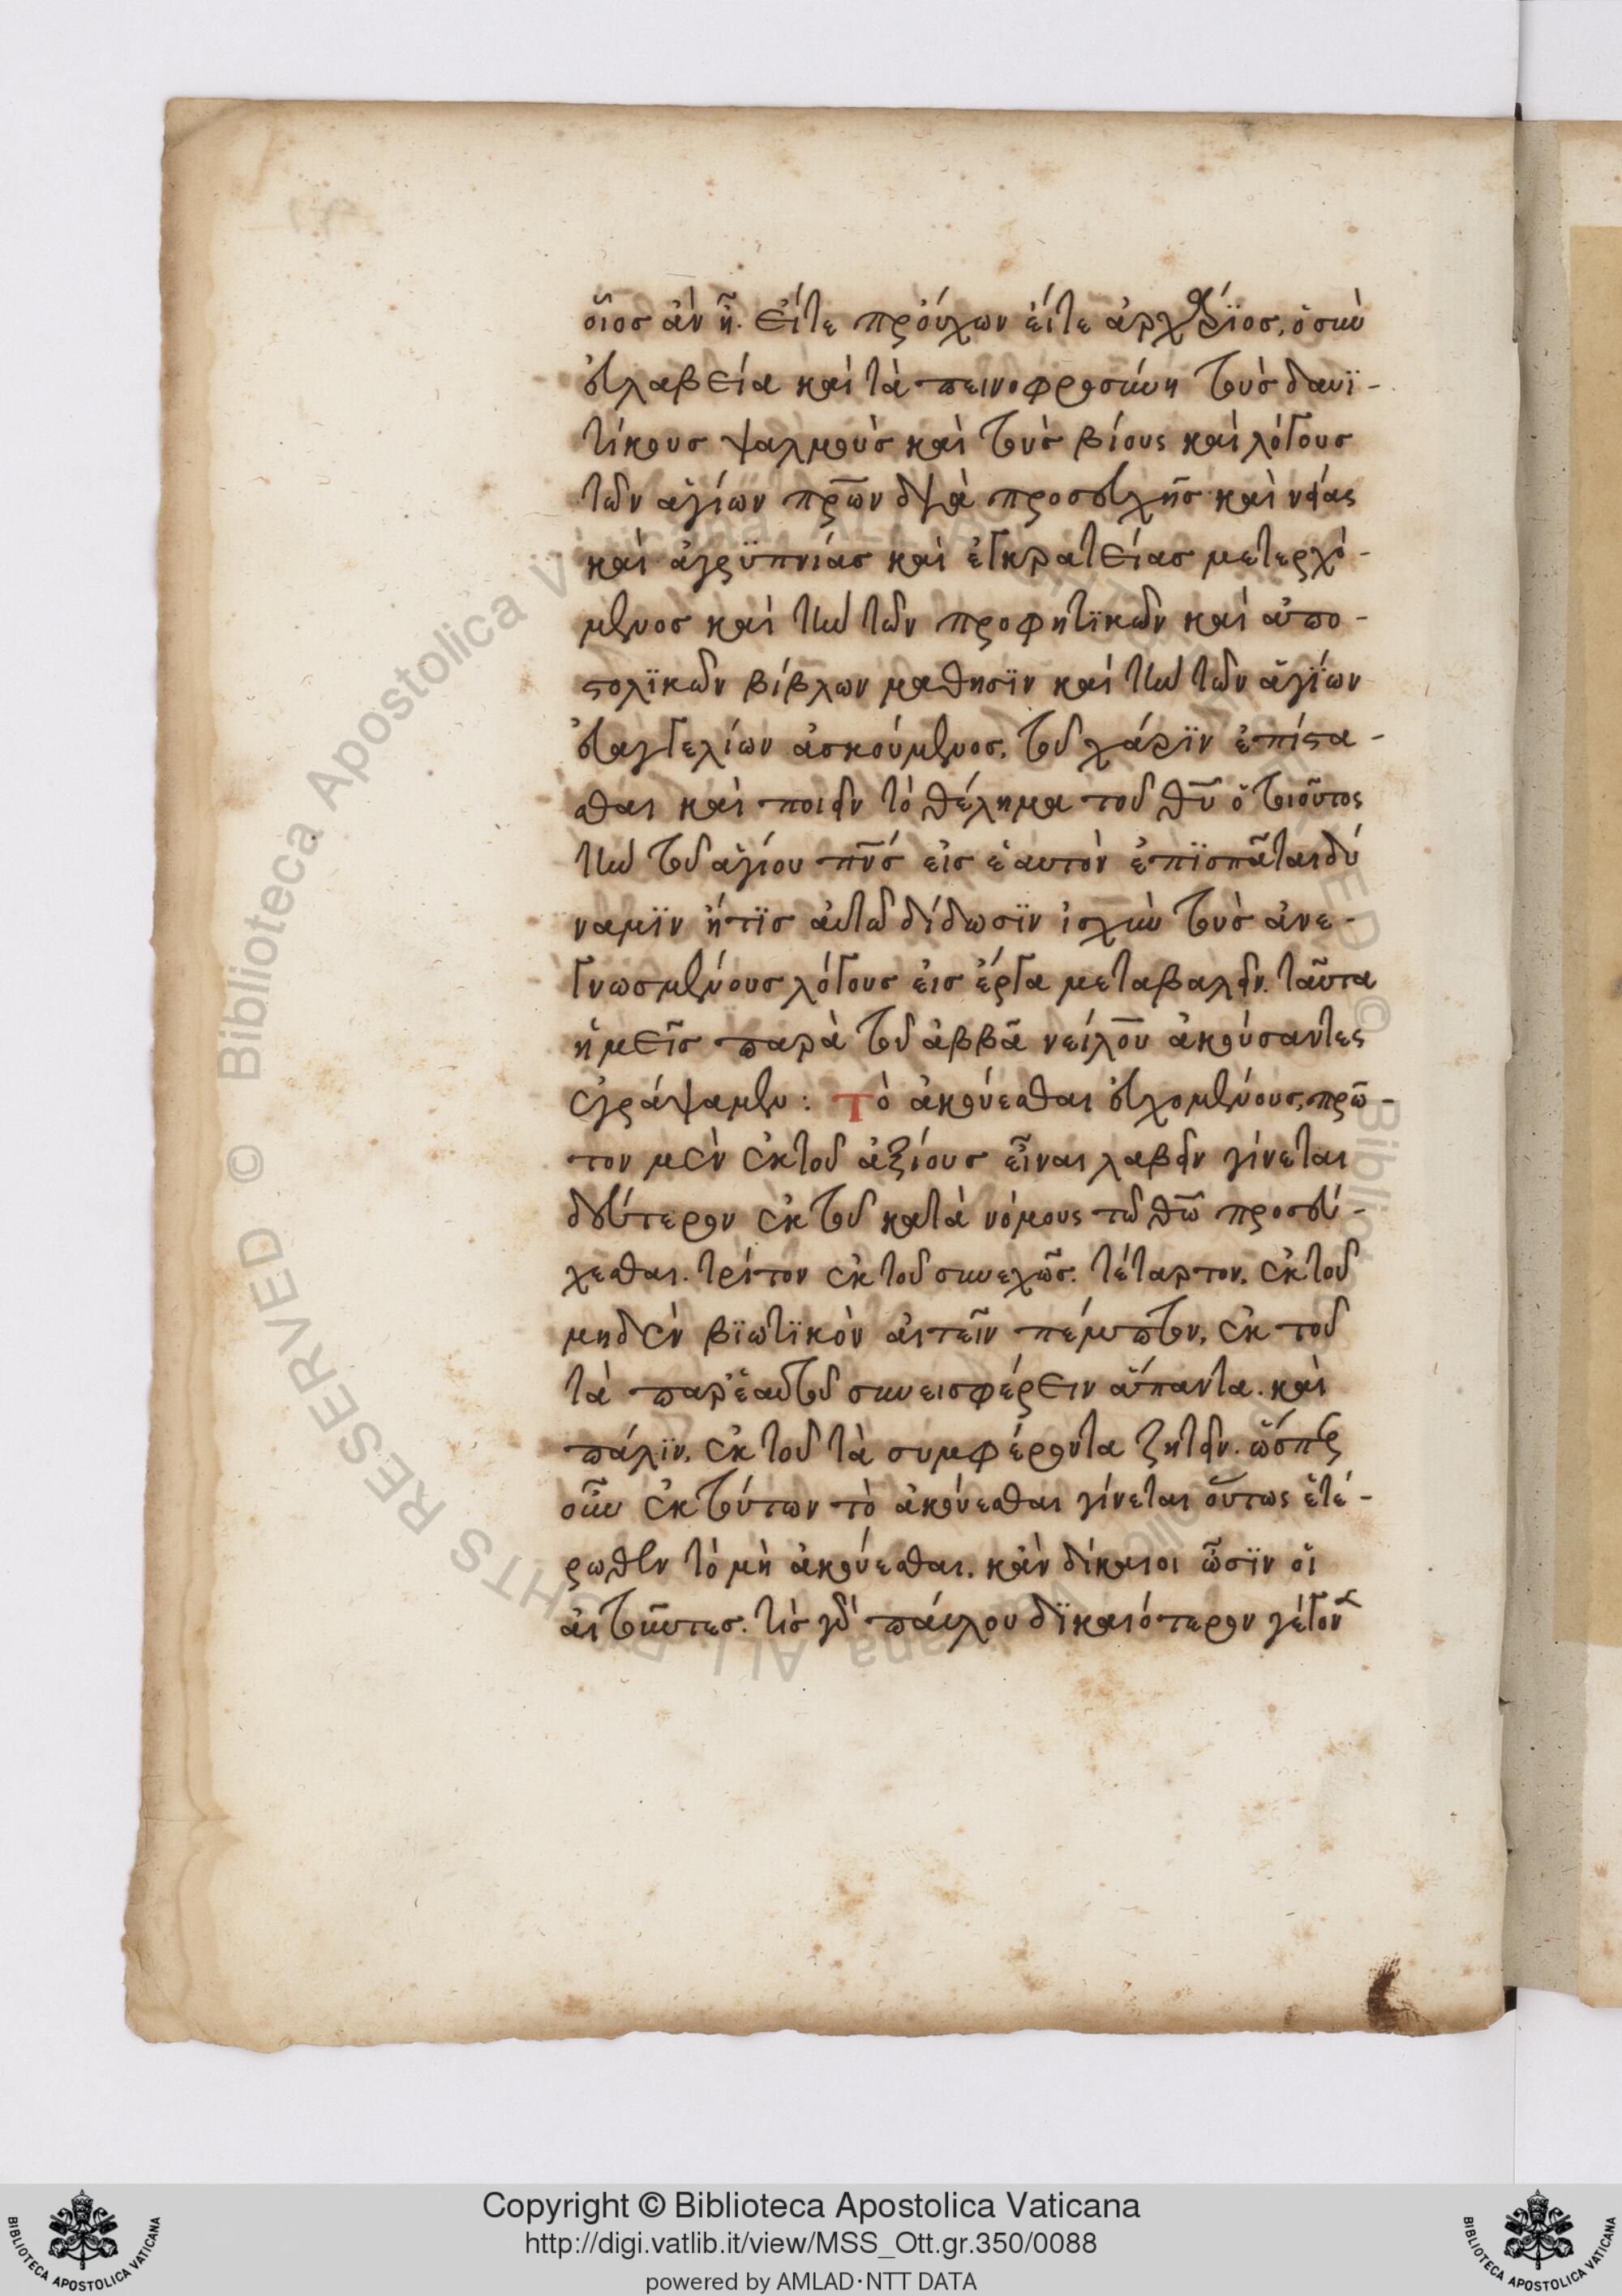 οἷος ἀν ἦ. εἴτε πρόυχων εἴτε ἀρχάριος, ὁ σὺν
εὐλαβεία καὶ ταπεινοφροσύνη τοὺς δαυϊ-
τίκους ψαλμοὺς καὶ τοὺς βίους καὶ λόγους
τῶν ἁγίων πρῶν μετὰ προσευχῆς καὶ νηστείας
καὶ ἀγρϋπνίας καὶ ἐγκρατείας μετερχό-
μενος καὶ τὴν τῶν προφητϊκῶν καὶ ἀπο-
στολϊκῶν βίβλων μαθησϊν καὶ τὴν τῶν ἁγϊων
εὐαγγελίων ἀσκούμενος, τοῦ χάρϊν ἐπίστα-
σθαι καὶ ποιεῖν τὸ θέλημα τοῦ θυ ὁ τοιοῦτος
τὴν τοῦ ἁγίου πνς εἰς ἑαυτὸν ἐπϊσπᾶται δύ
ναμϊν ἥτϊς αὐτῶ δίδωσϊν ἰσχὺν τοὺς ἀνε-
γνωσμένους λόγους εἰς ἔργα μεταβαλεῖν. ταῦτα
ἡμεῖς παρὰ τοῦ ἀββᾶ νείλου ἀκούσαντες
ἐγράψαμεν: Τὸ ἀκούεσθαι εὐχομένους, πρῶ-
τον μὲν ἐκ τοῦ ἀξίους εἶναι λαβεῖν γίνεται
δεύτερον ἐκ τοῦ κατὰ νόμους τῶ θω προσεύ-
χεσθαι. τρίτον ἐκ τοῦ συνεχῶς. τέταρτον, ἐκ τοῦ
μηδὲν βϊωτϊκὸν αἰτεῖν πέμπτον, ἐκ τοῦ
τὰ παρ' ἑαυτοῦ συνεισφέρειν ἅπαντα. καὶ
πάλϊν, ἐκ τοῦ τὰ συμφέροντα ζητεῖν. ὥσπερ
οὖν ἐκ τούτων τὸ ἀκούεσθαι γίνεται οὕτως ἑτέ-
ρωθεν τὸ μὴ ἀκούεσθαι, κἂν δίκαιοι ὦσϊν οἱ
αἰτοῦντες. τίς γὰρ παύλου δϊκαιότερον γέγον
Copyright © Biblioteca Apostolica Vaticana
http://digi.vatlib.it/view/MSS_Ott.gr.350/0088
powered by AMLAD·NTT DATA
BIBLIOTECA APOSTOLICA VATICANA
BIBLIOTECA APOSTOLICA VATICANA